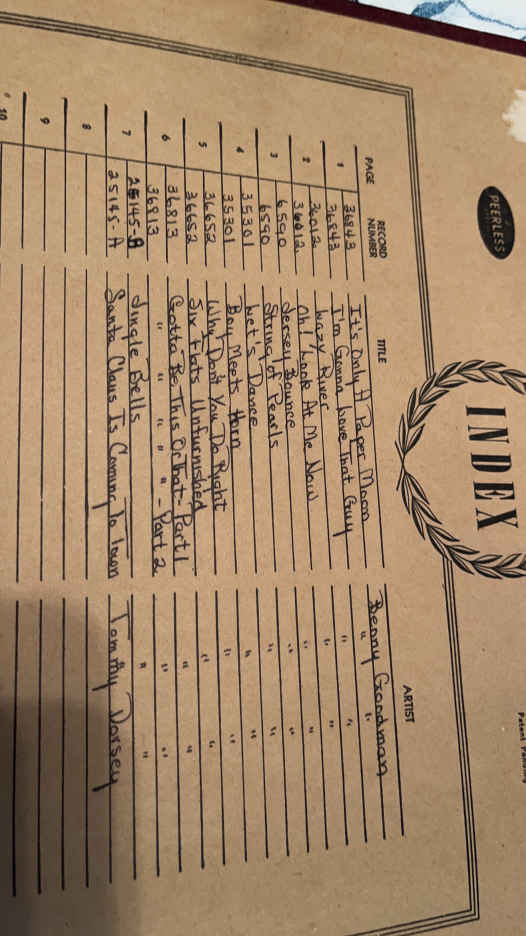 PEERLESS
Patent
INDEX
PAGE RECORD NUMBER TITLE ARTIST
1 36843 It's Only A Paper Moon Benny Goodman
36843 I'm Gonna Love That Guy " "
2 36012 Lazy River " "
36012 Oh! Look At Me Now " "
3 6590 Jersey Bounce " "
6590 String of Pearls " "
4 35301 Let's Dance " "
35301 Boy Meets Horn " "
5 36652 Why Don't You Do Right " "
36652 Six Flats Unfurnished " "
6 36813 Gotta Be This Or That - Part 1 " "
36813 " " " " " - Part 2 " "
7 25145-A Jingle Bells " "
25145-A Santa Claus Is Coming To Town Tommy Dorsey
8
9
10